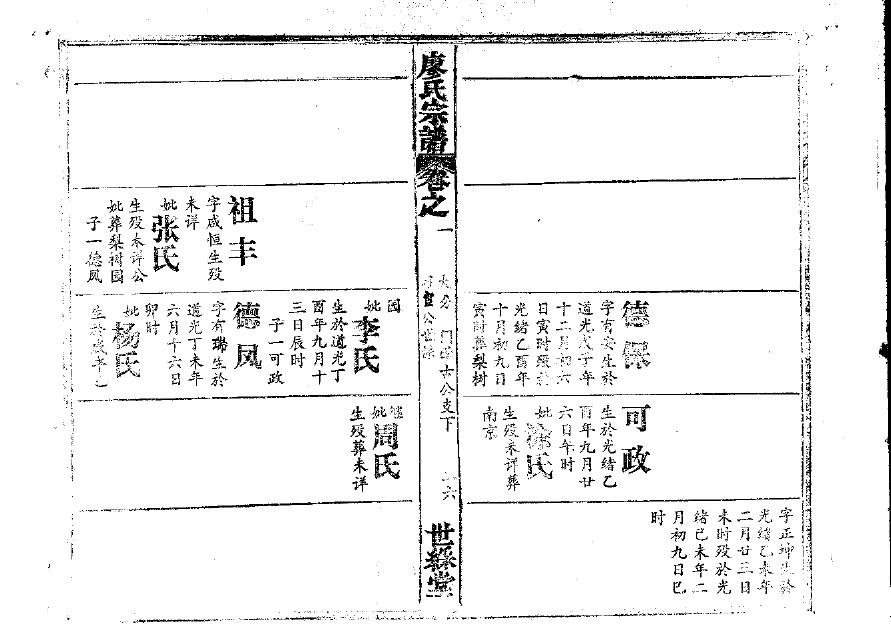 廖氏宗譜卷之一
公支下
世綵堂
德保
字有安生於
道光戊子年
十二月初六
日寅时殁於
光绪乙酉年
十月初九日
寅时葬梨树
园
妣李氏
生於道光丁
酉年九月十
三日辰时
子一可政
祖丰
字咸恒生殁
未详
妣张氏
生殁未详公
妣葬梨树园
子一德凤
德凤
字有瑞生於
道光丁未年
六月十六日
卯时
妣杨氏
可政
生於光绪乙
酉年九月廿
六日午时
妣涂氏
生殁未详葬
南京
继妣周氏
生殁葬未详
字正坤生於
光绪乙未年
二月廿三日
未时殁於光
绪己未年二
月初九日巳
时